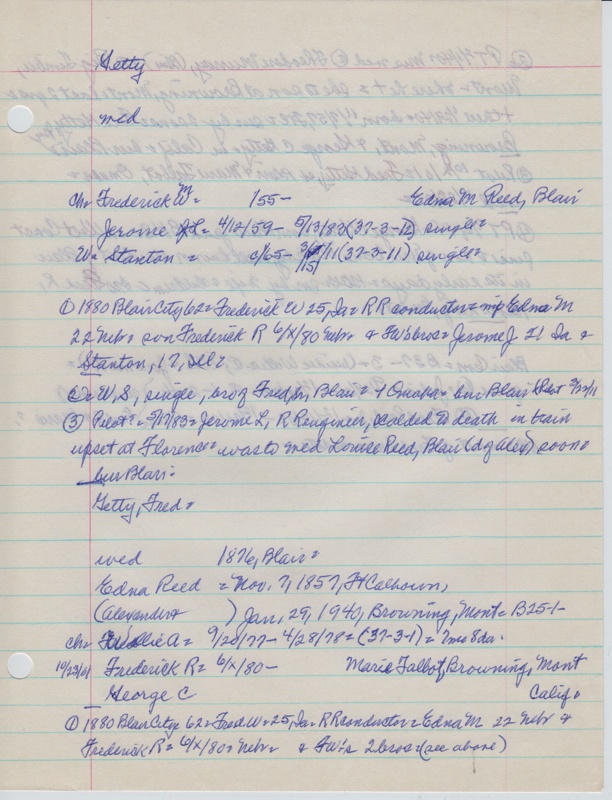 Getty
med
ch= Frederick W= 1855- Edna M Reed, Blair
Jerome L= 4/12/59- 5/13/83 (37-3-12) single=
W= Stanton = c/65- 3/15/11 (37-3-11) single=
① 1880 Blair City 62= Frederick W 25, Ia= RR conductor= m/p Edna M
22 Nebr= son Frederick R 6/X/80 Nebr= & FW's bros= Jerome J 21 Ia &
Stanton, 17, Ill=
②= W, S, single, bro of Fred, Sr, Blair= + Omaha= bur Blair (Pilot 3/22/11
③ Pilot= 5/17/83= Jerome L, RR engineer, scalded to death in train
upset at Florence= was to med Louise Reed, Blair (d of Alex) soon=
bur Blair=
Getty, Fred=
wed 1876, Blair=
Edna Reed = Nov. 7, 1857, Ft Calhoun,
(Alexander+ ) Jan, 29, 1940, Browning, Mont= B25-1-
ch= Willie A= 9/20/77- 4/28/78= (37-3-1)= 7mo 8da.
10/23/01 Frederick R= 6/X/80- Marie Talbot, Browning, Mont
George C Calif.
① 1880 Blair City 62= Fred W= 25, Ia= RR conductor= Edna M 22 Nebr &
Frederick R= 6/X/80= Nebr= & FW's 2 bros= (see above)